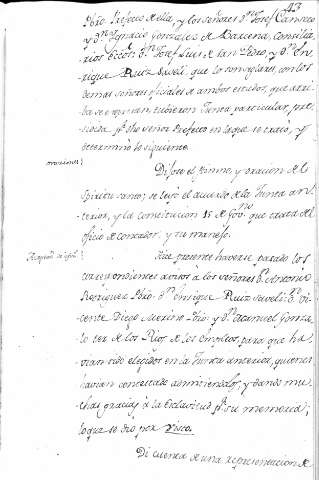 43
Pbro. Prefecto de ella, y los señores Dn. Josef Carrasco
y Dn. Ignacio Gonzalez de Baxena, consilia-
rios Eccos: Dn. Josef Luis de San Pedro, y Dn. En-
rique Ruiz Saveli, que lo son seglares, con los
demas señores oficiales de ambos estados, que arri-
ba se expresan, tuvieron Junta particular, pre-
sidida pr. dho señor Prefecto en la que se trató, y
determinó lo siguiente.
oraciones
Dijose el himno y oracion del
Spiritu santo; se leyó el acuerdo de la Junta an-
terior, y la constitucion 15 de Govno. que trata del
oficio de contador, y su manejo.
Hice presente haverse pasado los
correspondientes avisos á los señores Dn. Antonio
Rodriguez Pbro: Dn. Enrique Ruiz Saveli: Dn. Vi-
cente Diego Merino Pbro: y Dn. Manuel Gonza-
lez de los Rios, de los empleos, para que ha-
vian sido elegidos en la Junta anterior, quienes
havian contestado admitiendolos, y dando mu-
chas gracias á la Esclavitud pr. su memoria;
lo que se dió por visto.
Di cuenta de una representacion de